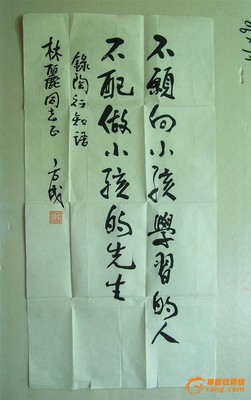 不願向小孩學習的人
不配做小孩的先生
錄陶行知語
林麗同志正
方成